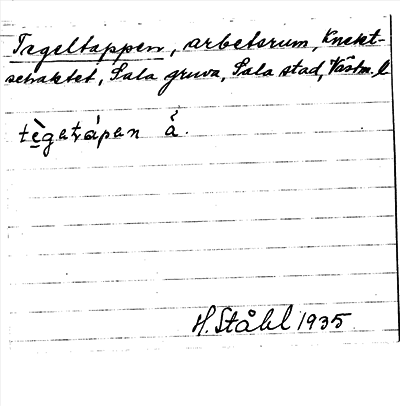 Tageltappen, arbetsrum, Knekt-
schaktet, Sala gruva, Sala stad, Västm. l
tègeltápen å̓.
H. Ståhl 1935